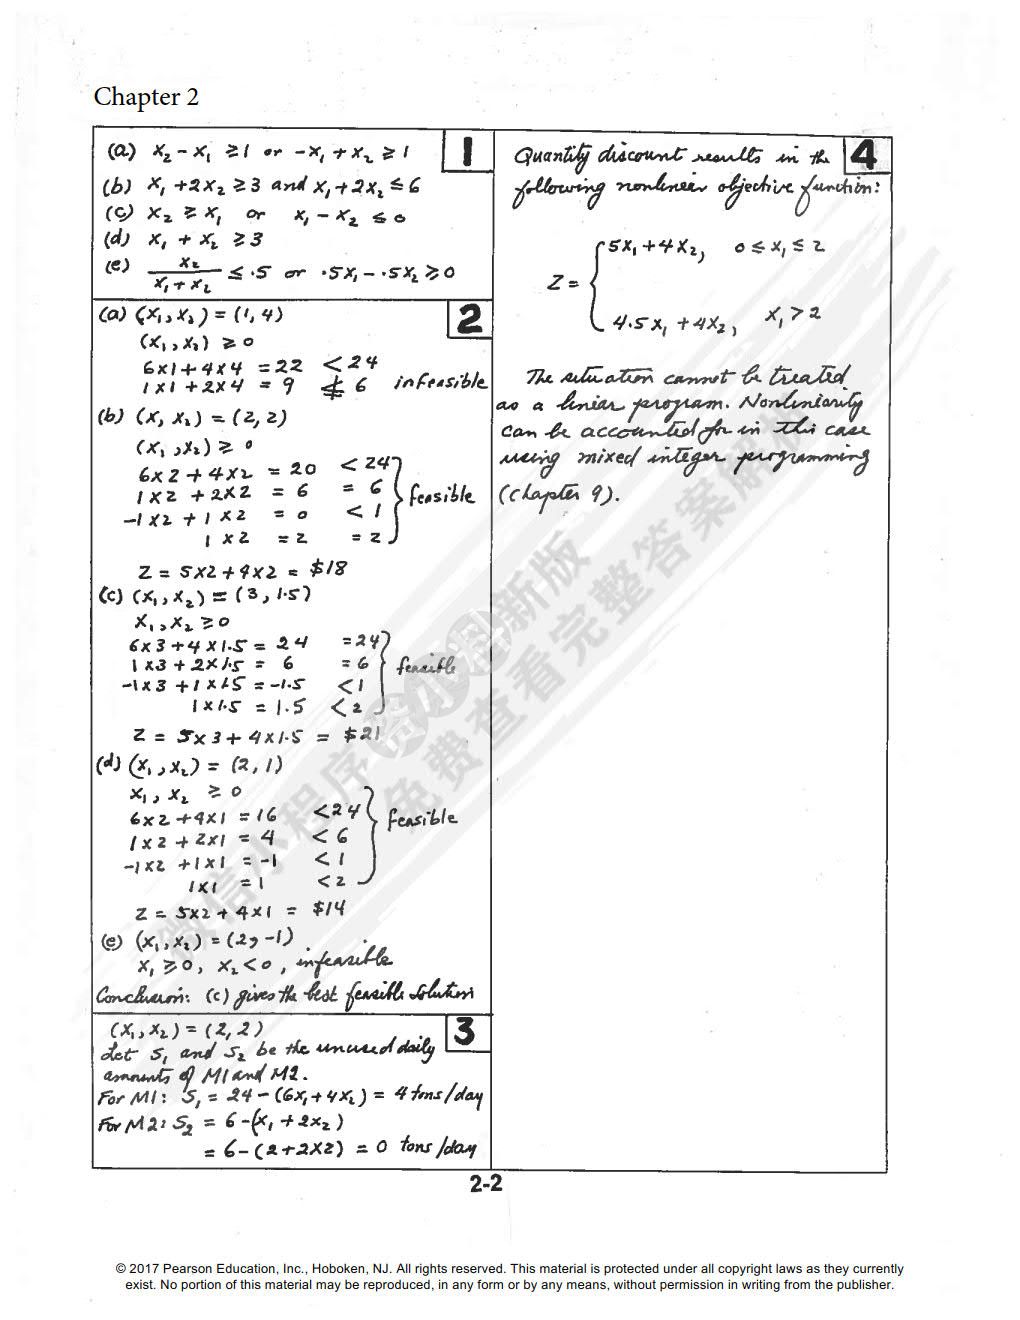 Chapter 2
1
(a) x₂ - x₁ ≥ 1 or -x₁ + x₂ ≥ 1
(b) x₁ + 2x₂ ≥ 3 and x₁ + 2x₂ ≤ 6
(c) x₂ ≥ x₁ or x₁ - x₂ ≤ 0
(d) x₁ + x₂ ≥ 3
(e) x₂ / (x₁ + x₂) ≤ .5 or .5x₁ - .5x₂ ≥ 0
2
(a) (x₁, x₂) = (1, 4)
(x₁, x₂) ≥ 0
6x1 + 4x4 = 22 < 24
1x1 + 2x4 = 9 ≰ 6 infeasible
(b) (x₁ x₂) = (2, 2)
(x₁, x₂) ≥ 0
6x2 + 4x2 = 20 < 24
1x2 + 2x2 = 6 = 6
feasible
-1x2 + 1x2 = 0 < 1
1x2 = 2 = 2
Z = 5x2 + 4x2 = $18
(c) (x₁, x₂) = (3, 1.5)
x₁, x₂ ≥ 0
6x3 + 4x1.5 = 24 = 24
1x3 + 2x1.5 = 6 = 6
feasible
-1x3 + 1x1.5 = -1.5 < 1
1x1.5 = 1.5 < 2
Z = 5x3 + 4x1.5 = $21
(d) (x₁, x₂) = (2, 1)
x₁, x₂ ≥ 0
6x2 + 4x1 = 16 < 24
feasible
1x2 + 2x1 = 4 < 6
-1x2 + 1x1 = -1 < 1
1x1 = 1 < 2
Z = 5x2 + 4x1 = $14
(e) (x₁, x₂) = (2, -1)
x₁ ≥ 0, x₂ < 0, infeasible
Conclusion: (c) gives the best feasible solution
3
(x₁, x₂) = (2, 2)
Let S₁ and S₂ be the unused daily
amounts of M1 and M2.
For M1: S₁ = 24 - (6x₁ + 4x₂) = 4 tons/day
For M2: S₂ = 6 - (x₁ + 2x₂)
= 6 - (2 + 2x2) = 0 tons/day
4
Quantity discount results in the
following nonlinear objective function:
5x₁ + 4x₂, 0 ≤ x₁ ≤ 2
Z =
4.5x₁ + 4x₂, x₁ > 2
The situation cannot be treated
as a linear program. Nonlinearity
can be accounted for in this case
using mixed integer programming
(Chapter 9).
2-2
© 2017 Pearson Education, Inc., Hoboken, NJ. All rights reserved. This material is protected under all copyright laws as they currently
exist. No portion of this material may be reproduced, in any form or by any means, without permission in writing from the publisher.
微信小程序
新版
免费查看完整答案解析